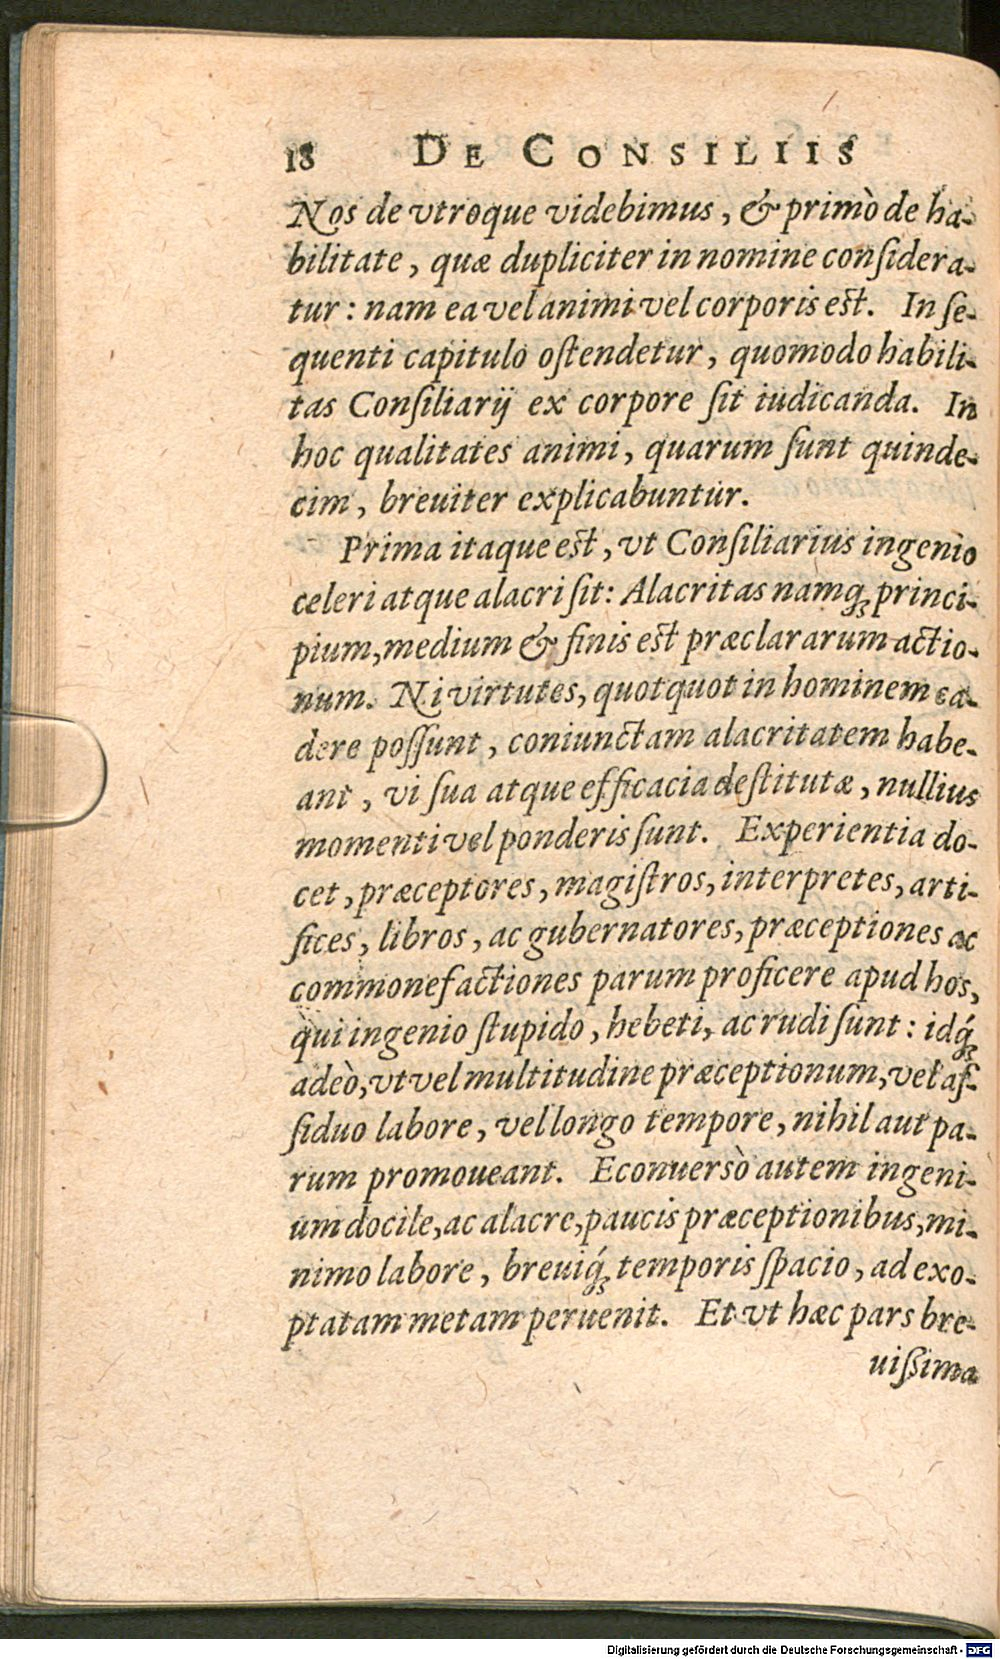 18 DE CONSILIIS
Nos de vtroque videbimus, & primò de ha-
bilitate, quæ dupliciter in nomine conſidera-
tur: nam ea vel animi vel corporis est. In ſe-
quenti capitulo oſtendetur, quomodo habili-
tas Conſiliarij ex corpore ſit iudicanda. In
hoc qualitates animi, quarum ſunt quinde-
cim, breuiter explicabuntur.
Prima itaque est, vt Conſiliarius ingenio
celeri atque alacri ſit: Alacritas namq́ꝫ princi-
pium, medium & finis est præclararum actio-
num. Ni virtutes, quotquot in hominem ca-
dere poſſunt, coniunctam alacritatem habe-
ant, vi ſua atque efficacia deſtitutæ, nullius
momenti vel ponderis ſunt. Experientia do-
cet, præceptores, magiſtros, interpretes, arti-
fices, libros, ac gubernatores, præceptiones ac
commonefactiones parum proficere apud hos,
qui ingenio ſtupido, hebeti, ac rudi ſunt: idq́ꝫ
adeò, vt vel multitudine præceptionum, vel aſ-
ſiduo labore, vel longo tempore, nihil aut pa-
rum promoueant. Econuersò autem ingeni-
um docile, ac alacre, paucis præceptionibus, mi-
nimo labore, breuiq́ꝫ temporis ſpacio, ad exo-
ptatam metam peruenit. Et vt hæc pars bre-
uiſsima
Digitalisierung gefördert durch die Deutsche Forschungsgemeinschaft - DFG